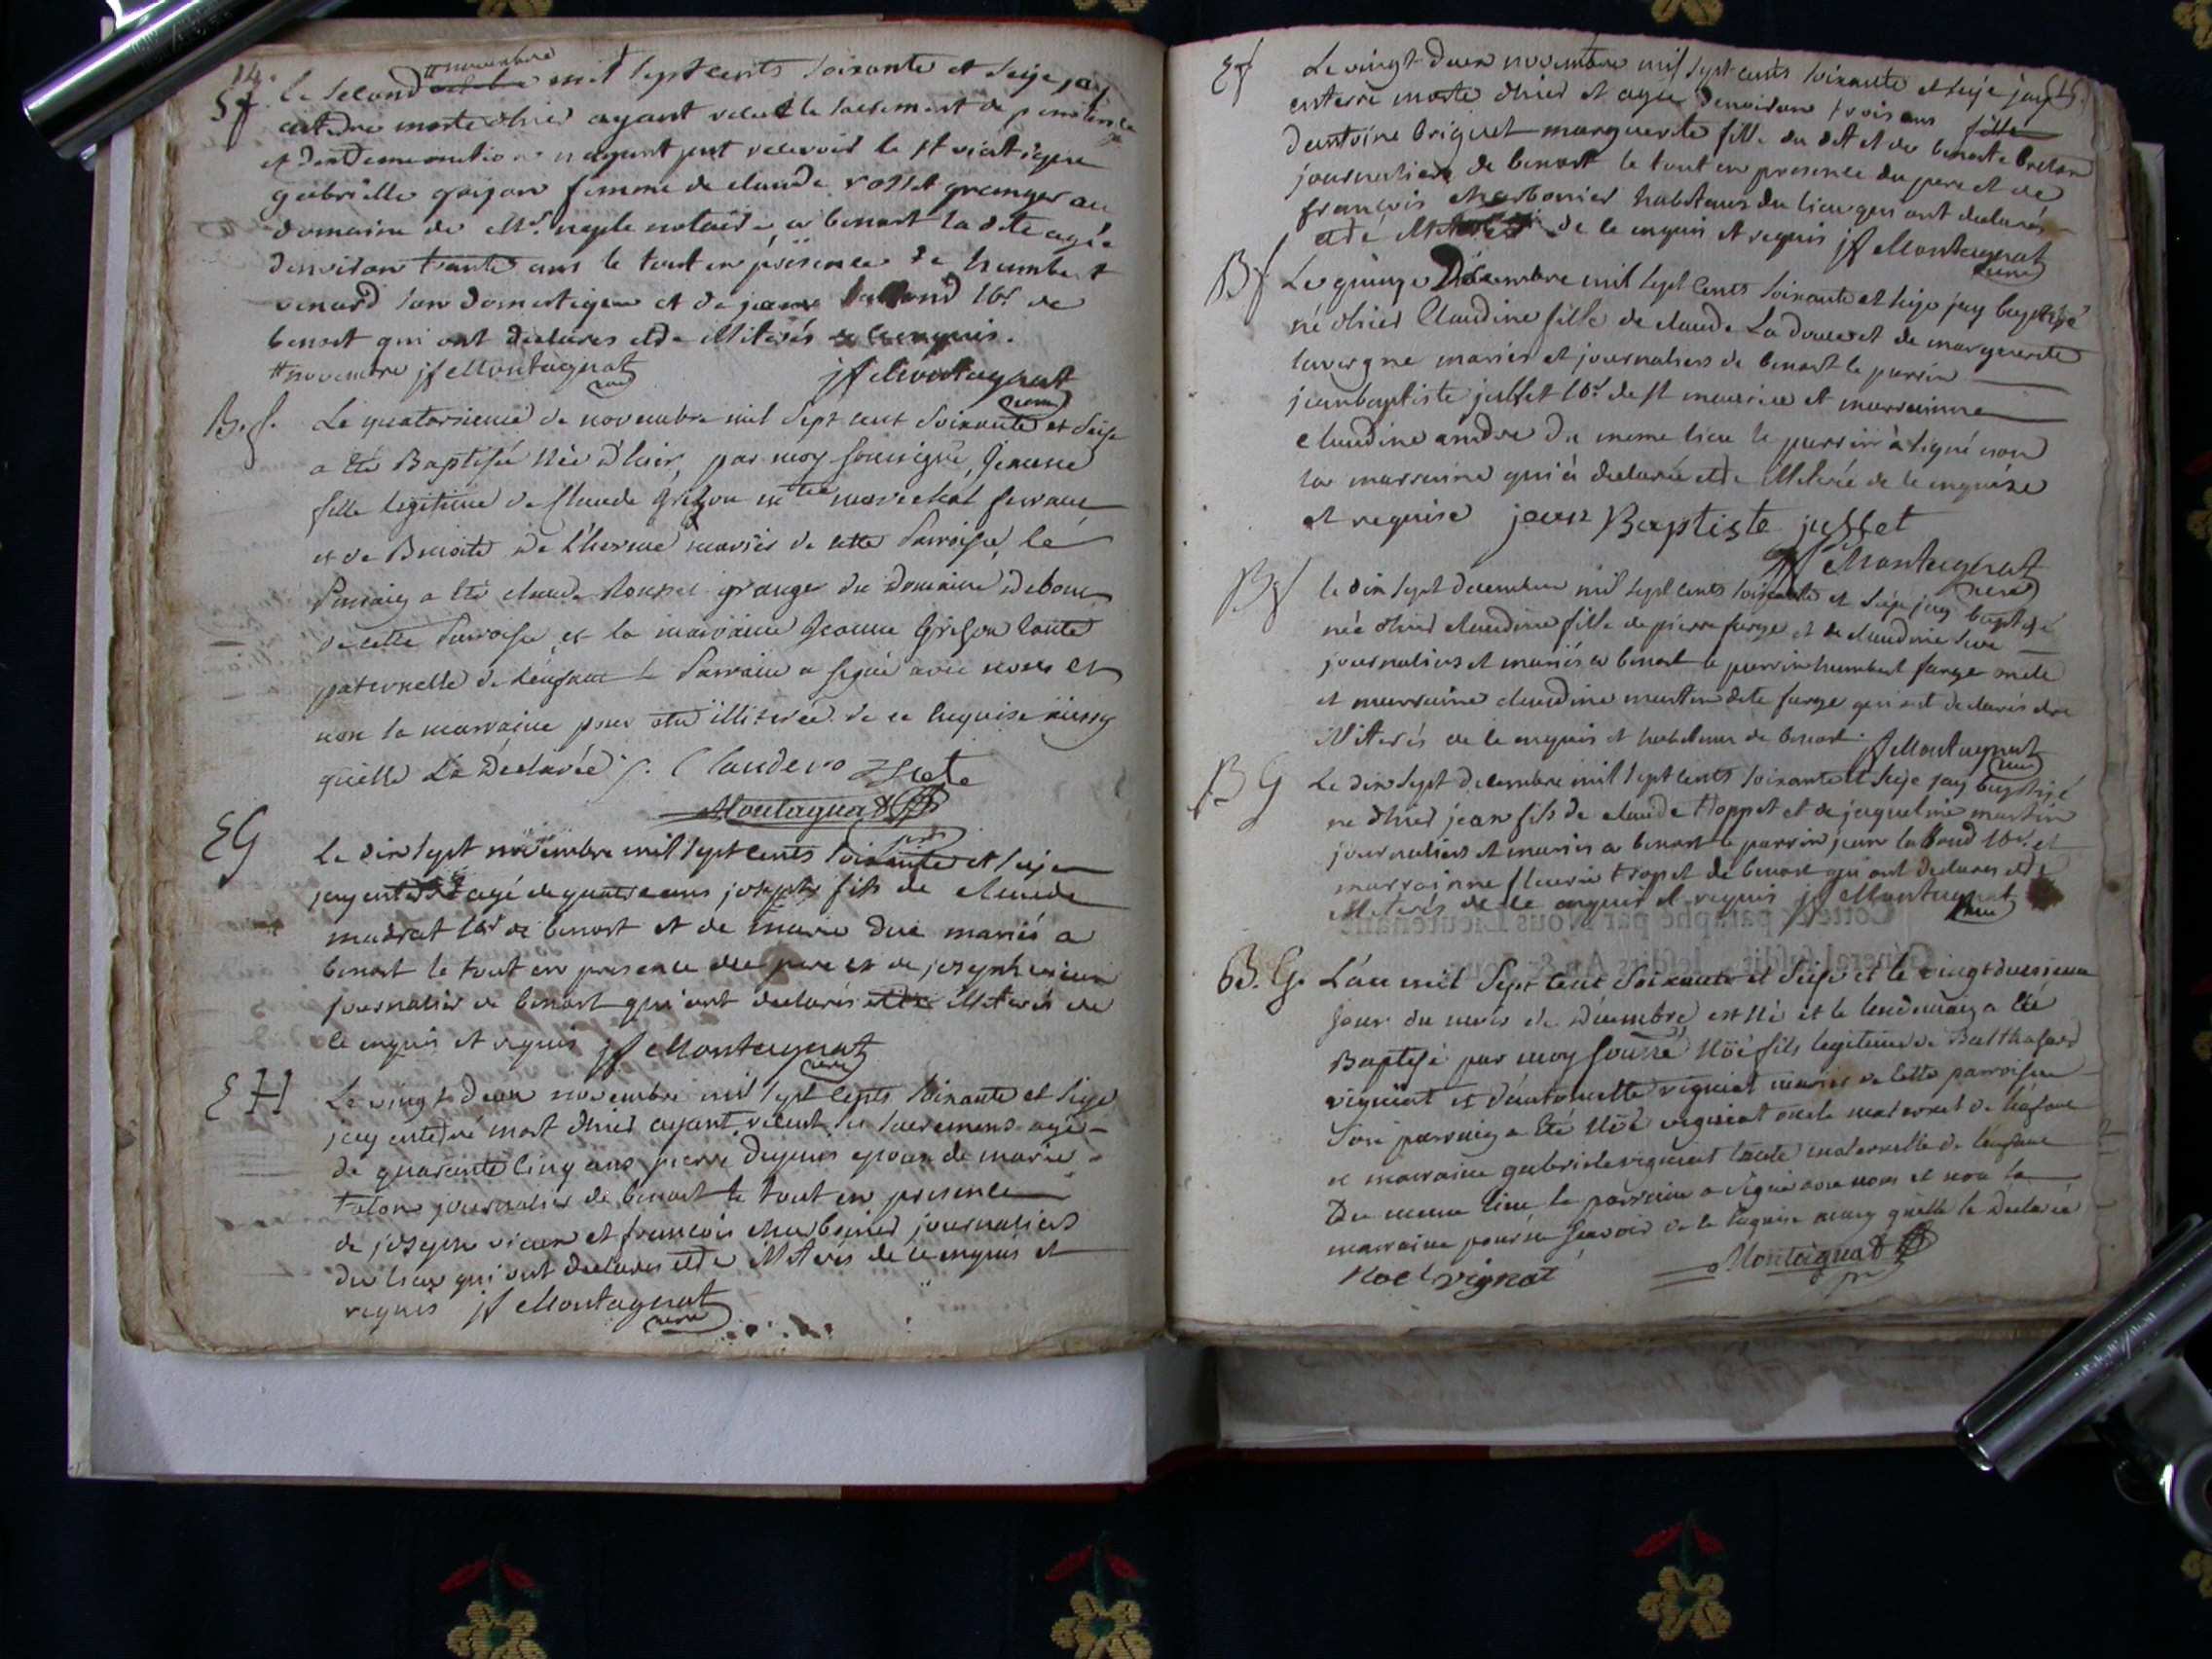 14.
Sf. le second octobre # novembre mil sept cents soixante et seize jay
enterre morte d'hier ayant receut le sacrement de penitence
et dextremonction nayant put recevoir le st viatique
gabrielle goyon femme de claude rosset granger au
domaine de Mr. neple notaire a benost la dite agée
denviron trante ans le tout en présence de humbert
venard son domestique et de jean labond lbr de
benost qui ont declares etre illiterés de ce enquis.
# novembre jf Montagnat curé
jf Montagnat curé
B. f. Le quatorsieme de novembre mil sept cent soixante et seise
a été Baptisée née d'hier, par moy soussigné, Jeanne
fille legitime de Claude Grison mtre marechal ferrant
et de Benoite De L'herme mariés de cette Parroisse, le
Parrain a été claude Rousset granger du Domaine Debout
de cette Parroisse, et la marraine Jeanne Grison tante
paternelle de l'enfant le Parrain a signé avec nous et
non la marraine pour etre illiterée de ce enquise ainsy
qu'elle L'a Déclarée ./. Claude rozzete
Montagnat
EG Le dix sept novembre mil sept cents soixante et seize
jay enterré agé de quatre ans joseph fils de claude
madrat lbr de benost et de marie duc mariés a
benost le tout en presence du pere et de joseph vieux
journalier de benost qui ont declarés etre illiterés de
ce enquis et requis jf Montagnat curé
EH Le vingt deux novembre mil sept cents soixante et seize
jay enterré mort d'hier ayant receut les sacremens agé
de quarante cinq ans pierre dupuis epoux de marie
talon journalier de benost le tout en presence
de joseph vieux et francois charbonier journaliers
du lieu qui ont declares etre illiterés de ce enquis et
requis jf Montagnat curé
Ef Le vingt deux novembre mil sept cents soixante et seize jay
enterré morte d'hier et agée denviron trois ans fille
dantoine briquet marguerite fille du dit et de benoite breton
journaliers de benost le tout en presence du pere et de
francois charbonier habitans du lieu qui ont declarés
etre illiterés de ce enquis et requis jf Montagnat curé
Bf Le quinze Décembre mil sept cents soixante et seize jay baptizé
né d'hier Claudine fille de claude Ladoue et de marguerite
lavergne mariés et journaliers de benost le parrin
jean baptiste jusset lbr de st maurice et marrainne
claudine andre du meme lieu le parrin à signé non
la marraine qui à declarée etre illiterée de ce enquise
et requise jean Baptiste jusset
jf Montagnat curé
Bf le dix sept decembre mil sept cents soixante et seize jay baptizé
née d'hier claudine fille de pierre farge et de claudine
journaliers et mariés a benost le parrin humbert farge
et marraine claudine martin dite farge qui ont declarés etre
illiterés de ce enquis et habitans de benost. jf Montagnat curé
BG Le dix sept decembre mil sept cents soixante et seize jay baptizé
né d'hier jean fils de claude troppet et de jaqueline martin
journaliers et mariés a benost le parrin jean labond lbr et
marrainne fleurie tropet de benost qui ont declares etre
illiterés de ce enquis et requis jf Montagnat curé
B. G. L'an mil sept cent soixante et seise et le vingt deuxieme
jour du mois de décembre est né et le lendemain a été
Baptisé par moy soussé Noé fils legitime de Balthasard
vigniat et d'antoinette vigniat mariés de cette parroisse
son parrain a été Noé vigniat oncle maternel de l'enfant
et marraine gabriele vigniat tante maternelle de l'enfant
Du meme lieu le parrain a signé avec nous et non la
marraine pour ne sçavoir de ce enquise ainsy qu'elle le declaré
Noel vignat Montagnat